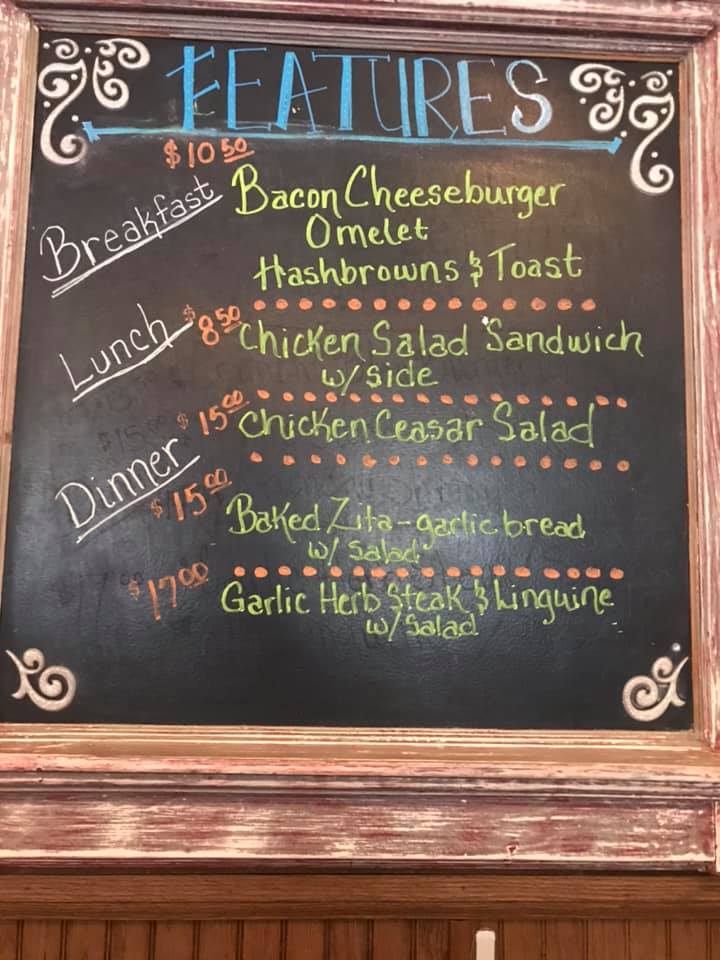 FEATURES
$10.50
Breakfast Bacon Cheeseburger
Omelet
Hashbrowns & Toast
Lunch $8.50 Chicken Salad Sandwich
w/ side
$15.00 Chicken Ceasar Salad
Dinner
$15.00 Baked Zita - garlic bread
w/ Salad
$17.00 Garlic Herb Steak & Linguine
w/ Salad